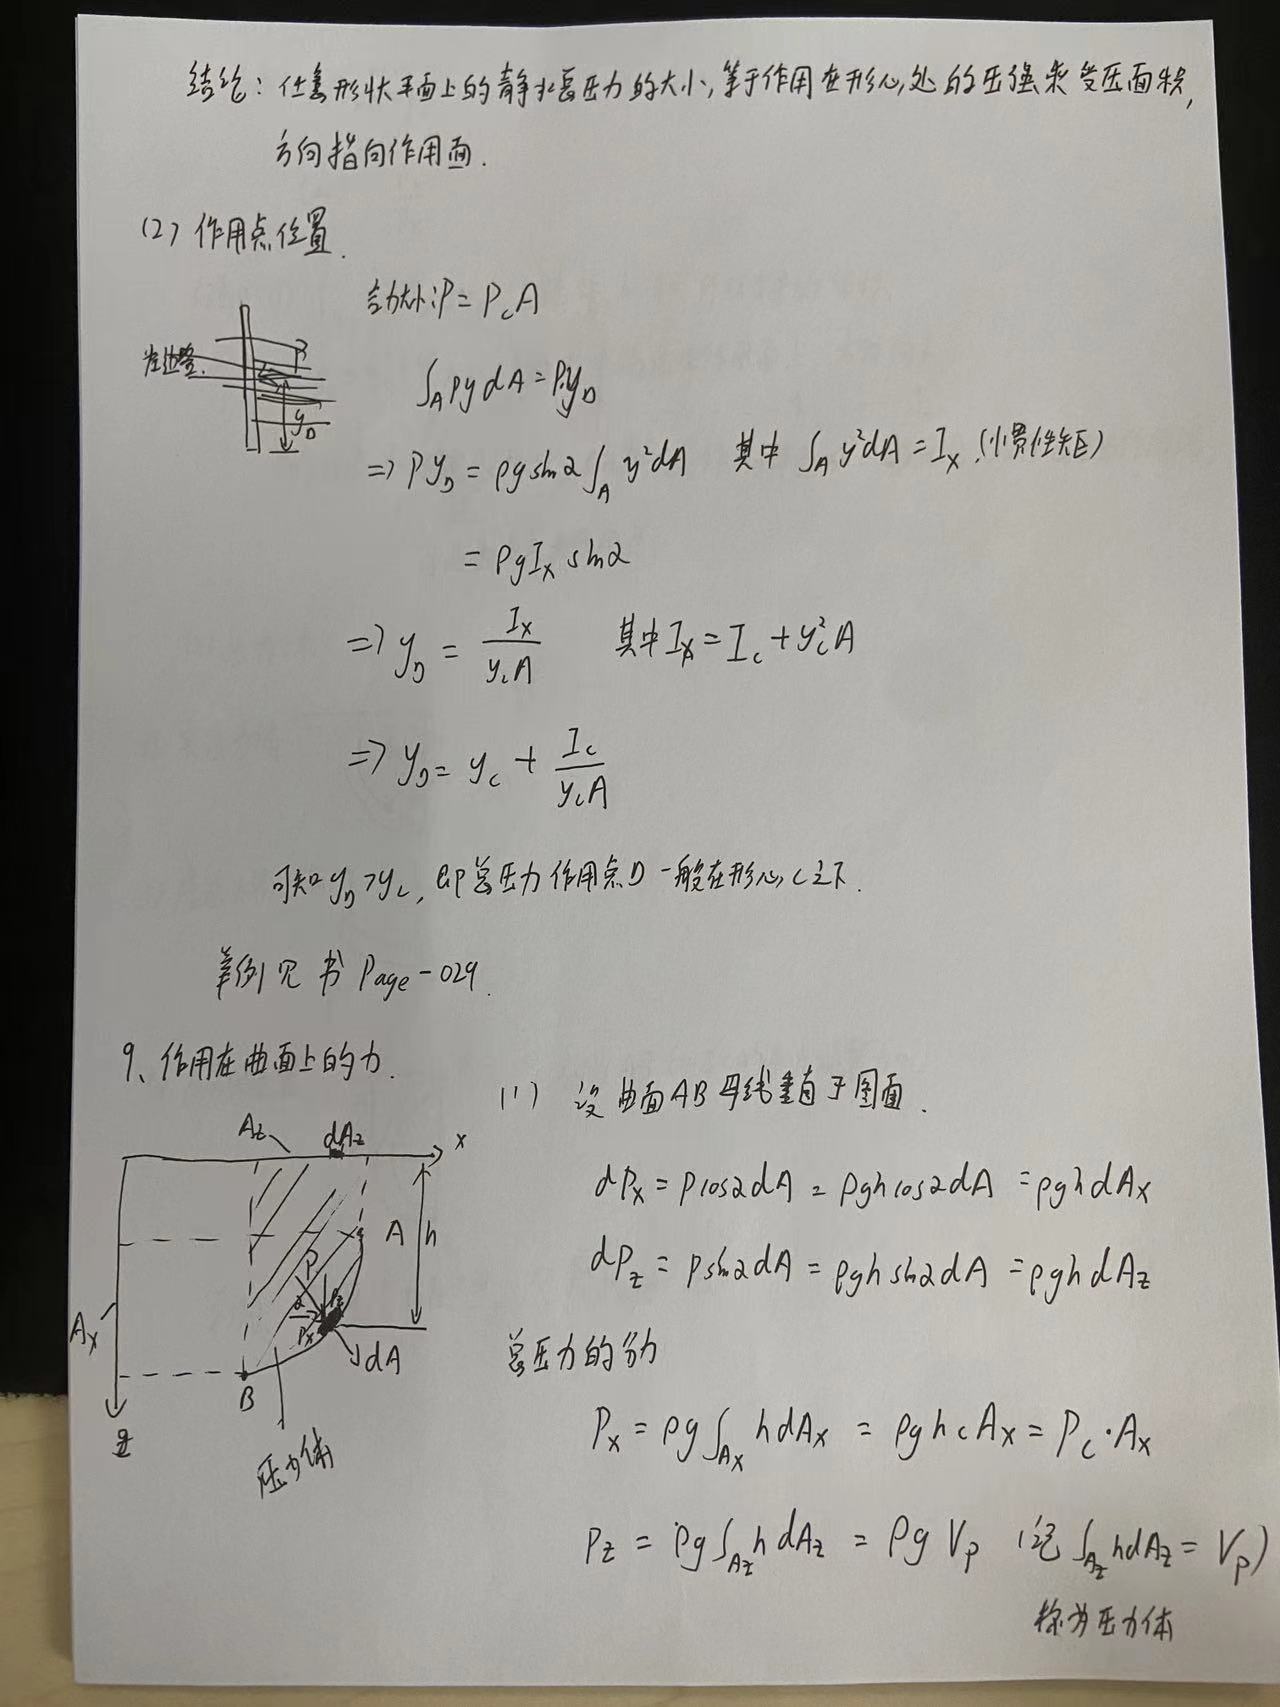 结论：任意形状平面上的静水总压力的大小，等于作用在形心处的压强乘受压面积，
方向指向作用面．
(2) 作用点位置．
合力大小：P = P_c A
∫_A P y dA = P y_D
⇒ P y_D = ρg sinα ∫_A y² dA 其中 ∫_A y² dA = I_x (惯性矩)
= ρg I_x sinα
⇒ y_D = I_x / (y_c A) 其中 I_x = I_c + y_c² A
⇒ y_D = y_c + I_c / (y_c A)
可知 y_D > y_c，即总压力作用点D一般在形心C之下．
举例见书 Page-029．
9、作用在曲面上的力．
(1) 设曲面AB母线垂直于图面．
A_z dA_z x
A h
P
α P_z
P_x
dA
A_x
B
z
压力体
dP_x = P cosα dA = ρgh cosα dA = ρgh dA_x
dP_z = P sinα dA = ρgh sinα dA = ρgh dA_z
总压力的分力
P_x = ρg ∫_{A_x} h dA_x = ρg h_c A_x = P_c · A_x
P_z = ρg ∫_{A_z} h dA_z = ρg V_p (记 ∫_{A_z} h dA_z = V_p)
称为压力体
y_D